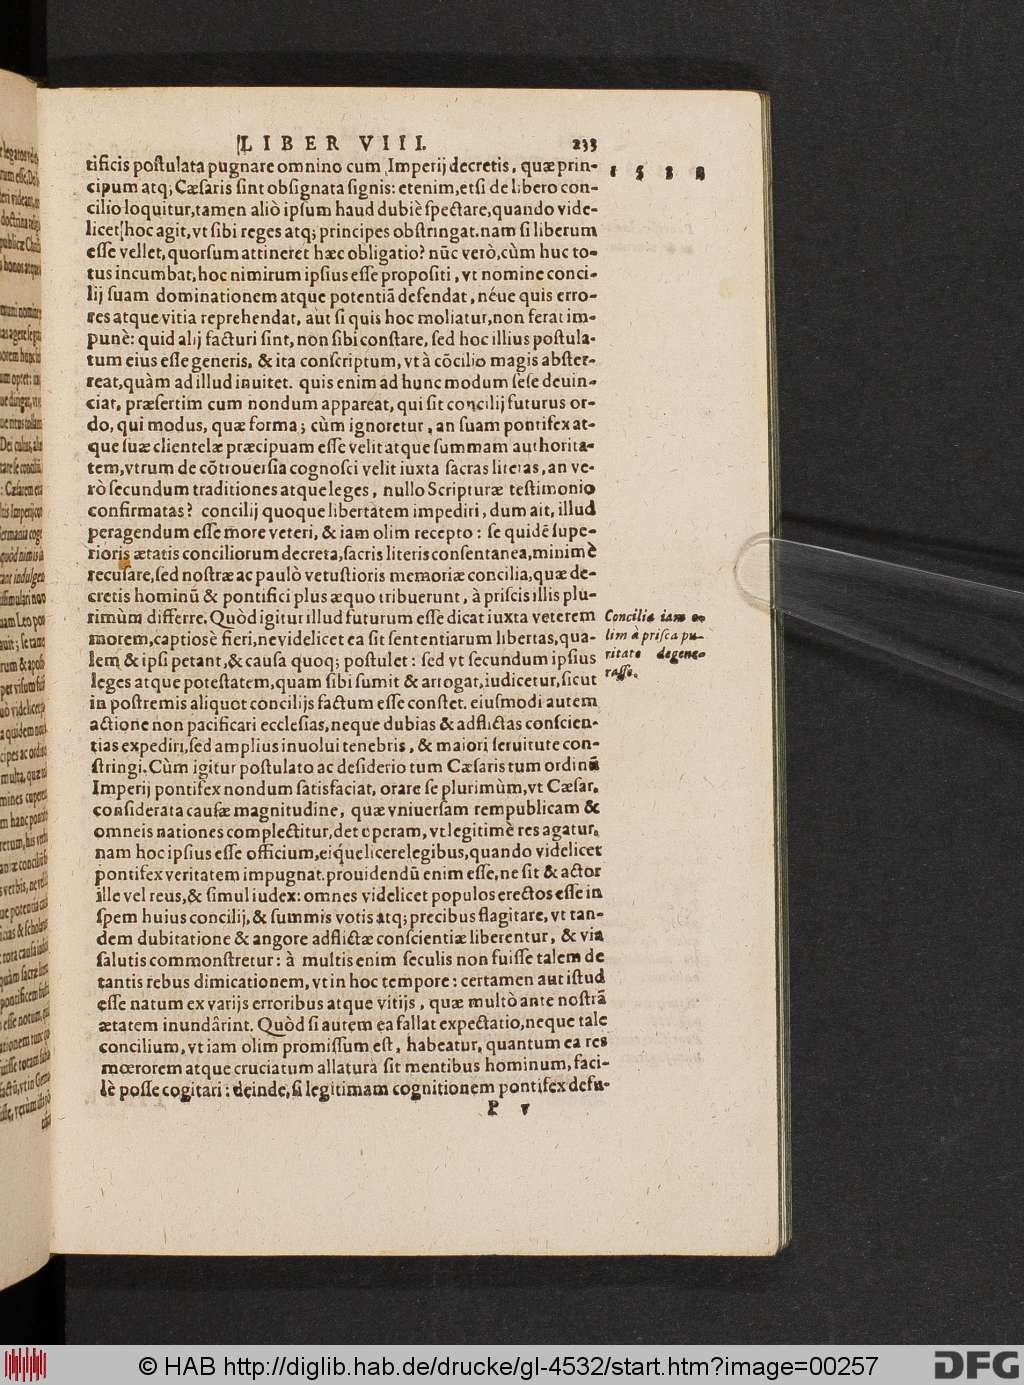 LIBER VIII. 233
tificis poſtulata pugnare omnino cum Imperij decretis, quæ prin-
cipum atq; Cæſaris ſint obſignata ſignis: etenim, etſi de libero con-
cilio loquitur, tamen aliò ipſum haud dubiè ſpectare, quando vide-
licet hoc agit, vt ſibi reges atq; principes obſtringat. nam ſi liberum
eſſe vellet, quorſum attineret hæc obligatio? nũc verò, cùm huc to-
tus incumbat, hoc nimirum ipſius eſſe propoſiti, vt nomine conci-
lij ſuam dominationem atque potentiã defendat, néue quis erro-
res atque vitia reprehendat, aut ſi quis hoc moliatur, non ferat im-
punè: quid alij facturi ſint, non ſibi conſtare, ſed hoc illius poſtula-
tum eius eſſe generis, & ita conſcriptum, vt à cõcilio magis abſter-
reat, quàm ad illud inuitet. quis enim ad hunc modum ſeſe deuin-
ciat, præſertim cum nondum appareat, qui ſit concilij futurus or-
do, qui modus, quæ forma; cùm ignoretur, an ſuam pontifex at-
que ſuæ clientelæ præcipuam eſſe velit atque ſummam authorita-
tem, vtrum de cõtrouerſia cognoſci velit iuxta ſacras literas, an ve-
rò ſecundum traditiones atque leges, nullo Scripturæ teſtimonio
confirmatas? concilij quoque libertatem impediri, dum ait, illud
peragendum eſſe more veteri, & iam olim recepto: ſe quidẽ ſupe-
rioris ætatis conciliorum decreta, ſacris literis conſentanea, minimè
recuſare, ſed noſtræ ac paulò vetuſtioris memoriæ concilia, quæ de-
cretis hominũ & pontifici plus æquo tribuerunt, à priſcis illis plu-
rimùm differre. Quòd igitur illud futurum eſſe dicat iuxta veterem
morem, captiosè fieri, ne videlicet ea ſit ſententiarum libertas, qua-
lem & ipſi petant, & cauſa quoq; poſtulet: ſed vt ſecundum ipſius
leges atque poteſtatem, quam ſibi ſumit & arrogat, iudicetur, ſicut
in poſtremis aliquot concilijs factum eſſe conſtet. eiuſmodi autem
actione non pacificari eccleſias, neque dubias & adflictas conſcien-
tias expediri, ſed amplius inuolui tenebris, & maiori ſeruitute con-
ſtringi. Cùm igitur poſtulato ac deſiderio tum Cæſaris tum ordinũ
Imperij pontifex nondum ſatisfaciat, orare ſe plurimùm, vt Cæſar,
conſiderata cauſæ magnitudine, quæ vniuerſam rempublicam &
omneis nationes complectitur, det operam, vt legitimè res agatur.
nam hoc ipſius eſſe officium, eique licere legibus, quando videlicet
pontifex veritatem impugnat. prouidendũ enim eſſe, ne ſit & actor
ille vel reus, & ſimul iudex: omnes videlicet populos erectos eſſe in
ſpem huius concilij, & ſummis votis atq; precibus flagitare, vt tan-
dem dubitatione & angore adflictæ conſcientiæ liberentur, & via
ſalutis commonſtretur: à multis enim ſeculis non fuiſſe talem de
tantis rebus dimicationem, vt in hoc tempore: certamen aut iſtud
eſſe natum ex varijs erroribus atque vitijs, quæ multò ante noſtrã
ætatem inundârint. Quòd ſi autem ea fallat expectatio, neque tale
concilium, vt iam olim promiſſum eſt, habeatur, quantum ea res
mœrorem atque cruciatum allatura ſit mentibus hominum, faci-
lè poſſe cogitari: deinde, ſi legitimam cognitionem pontifex defu-
P v
Concilia iam o-
lim à priſca pu-
ritate degene-
raſſe.
© HAB http://diglib.hab.de/drucke/gl-4532/start.htm?image=00257
DFG